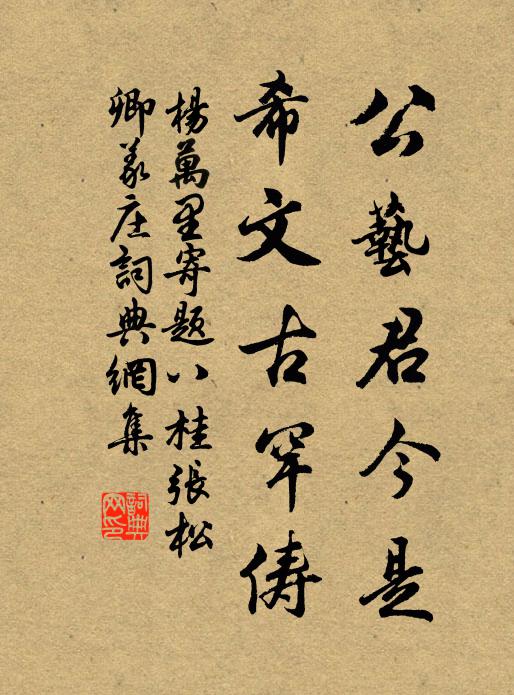 公藝君今是
希文古罕儔
楊萬里寄題八桂張松
卿義庄詞典網集
詞典網印